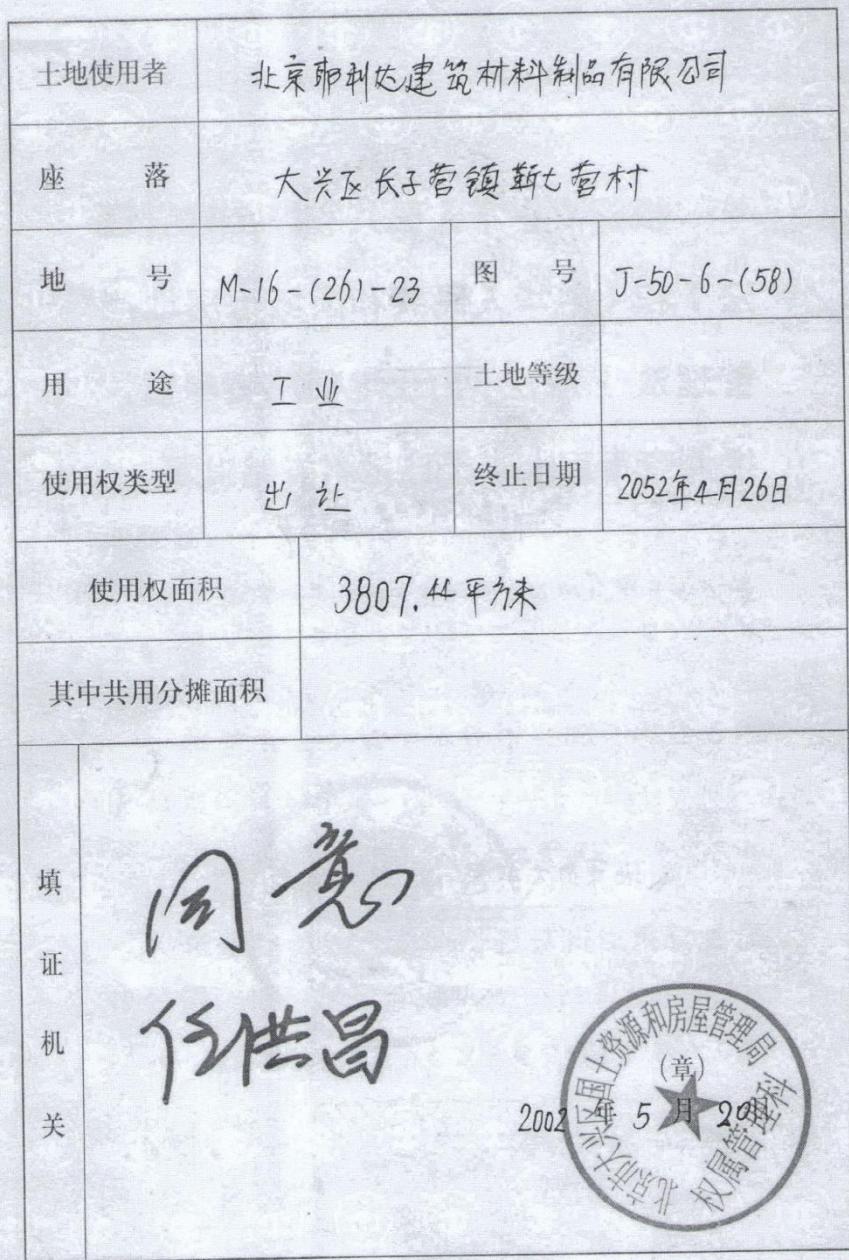 土地使用者 北京郁利达建筑材料制品有限公司
座落 大兴区长子营镇靳七营村
地号 M-16-(26)-23 图号 J-50-6-(58)
用途 工业 土地等级
使用权类型 出让 终止日期 2052年4月26日
使用权面积 3807.44平方米
其中共用分摊面积
填证机关
同意
任洪昌
北京市大兴区国土资源和房屋管理局
(章)
2002年5月20日
权属管理科